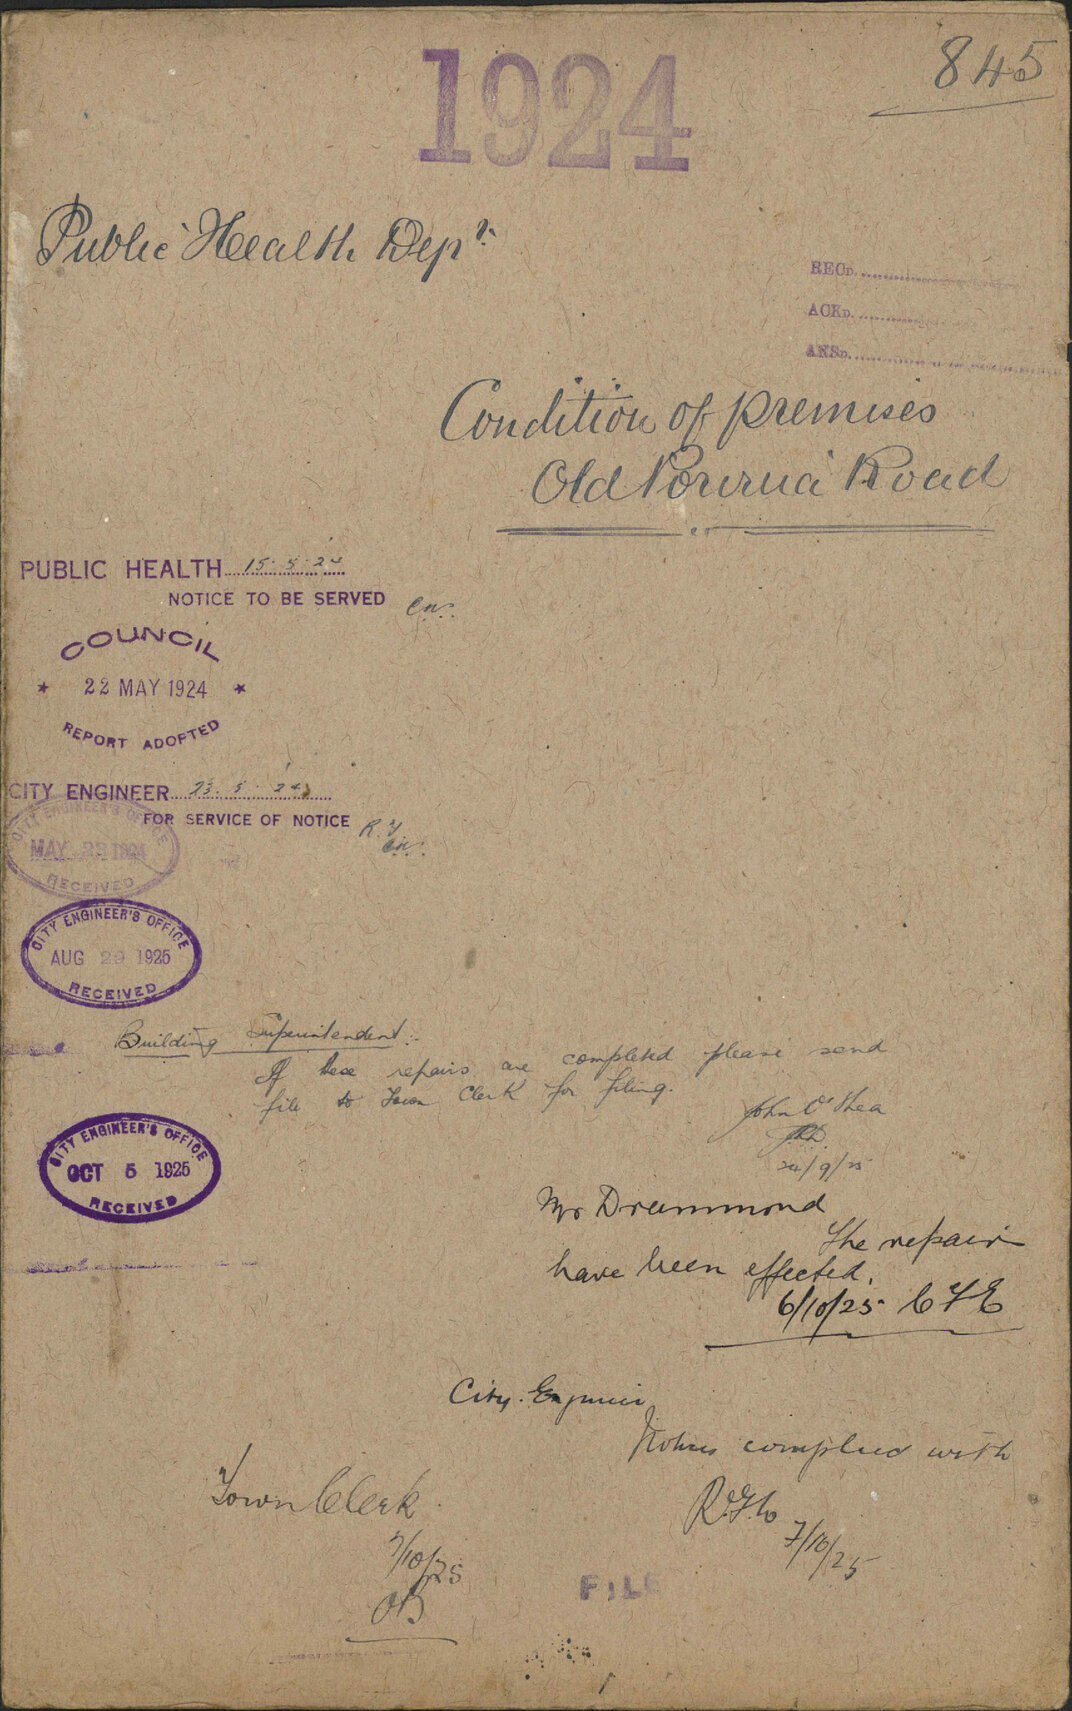 1924
845
Public Health Dept.
RECD.
ACKD.
ANSD.
Condition of premises
Old Porirua Road
PUBLIC HEALTH 15.5.24
NOTICE TO BE SERVED
COUNCIL
* 22 MAY 1924 *
REPORT ADOPTED
CITY ENGINEER 23.5.24
FOR SERVICE OF NOTICE
CITY ENGINEER'S OFFICE
MAY 23 1924
RECEIVED
CITY ENGINEER'S OFFICE
AUG 29 1925
RECEIVED
Building Superintendent:
If these repairs are completed please send
file to Town Clerk for filing.
John O'Shea
24/9/25
CITY ENGINEER'S OFFICE
OCT 5 1925
RECEIVED
Mr Drummond
The repairs
have been effected.
6/10/25
City Engineer
Notices complied with
7/10/25
Town Clerk
7/10/25
FILE